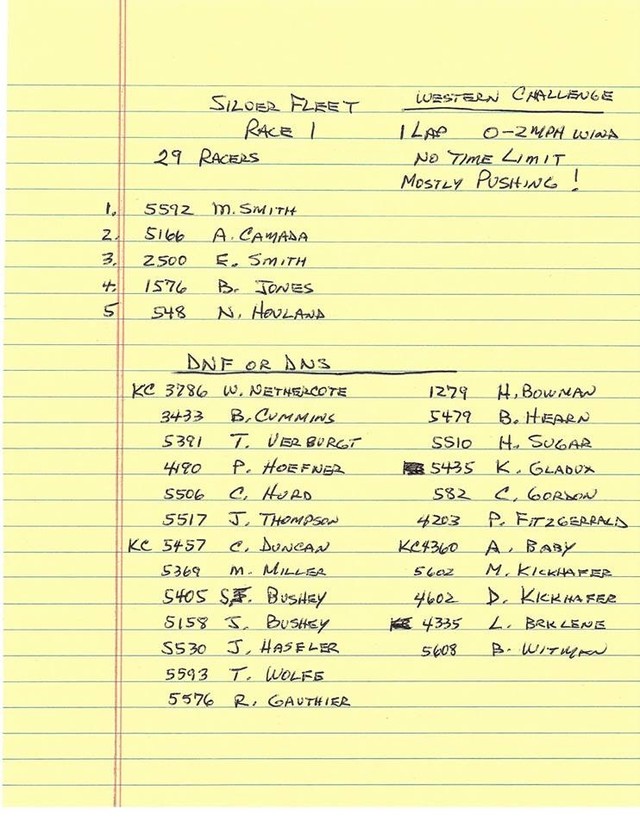 SILVER FLEET
RACE 1
29 RACERS
WESTERN CHALLENGE
1 LAP 0-2 MPH WIND
NO TIME LIMIT
MOSTLY PUSHING!
1. 5592 M. SMITH
2. 5166 A. CAMADA
3. 2500 E. SMITH
4. 1576 B. JONES
5 548 N. HOVLAND
DNF OR DNS
KC 3786 W. NETHERCOTE
3433 B. CUMMINS
5391 T. VERBURGT
4190 P. HOEFNER
5506 C. HURD
5517 J. THOMPSON
KC 5457 C. DUNCAN
5369 M. MILLER
5405 BUSHEY
5158 J. BUSHEY
5530 J. HASELER
5593 T. WOLFE
5576 R. GAUTHIER
1279 H. BOWMAN
5479 B. HEARN
5510 H. SUGAR
5435 K. GLADUX
582 C. GORDON
4203 P. FITZGERRALD
KC4360 A. BABY
5602 M. KICKHAFER
4602 D. KICKHAFER
4335 L. BRKLENE
5608 B. WITMAN